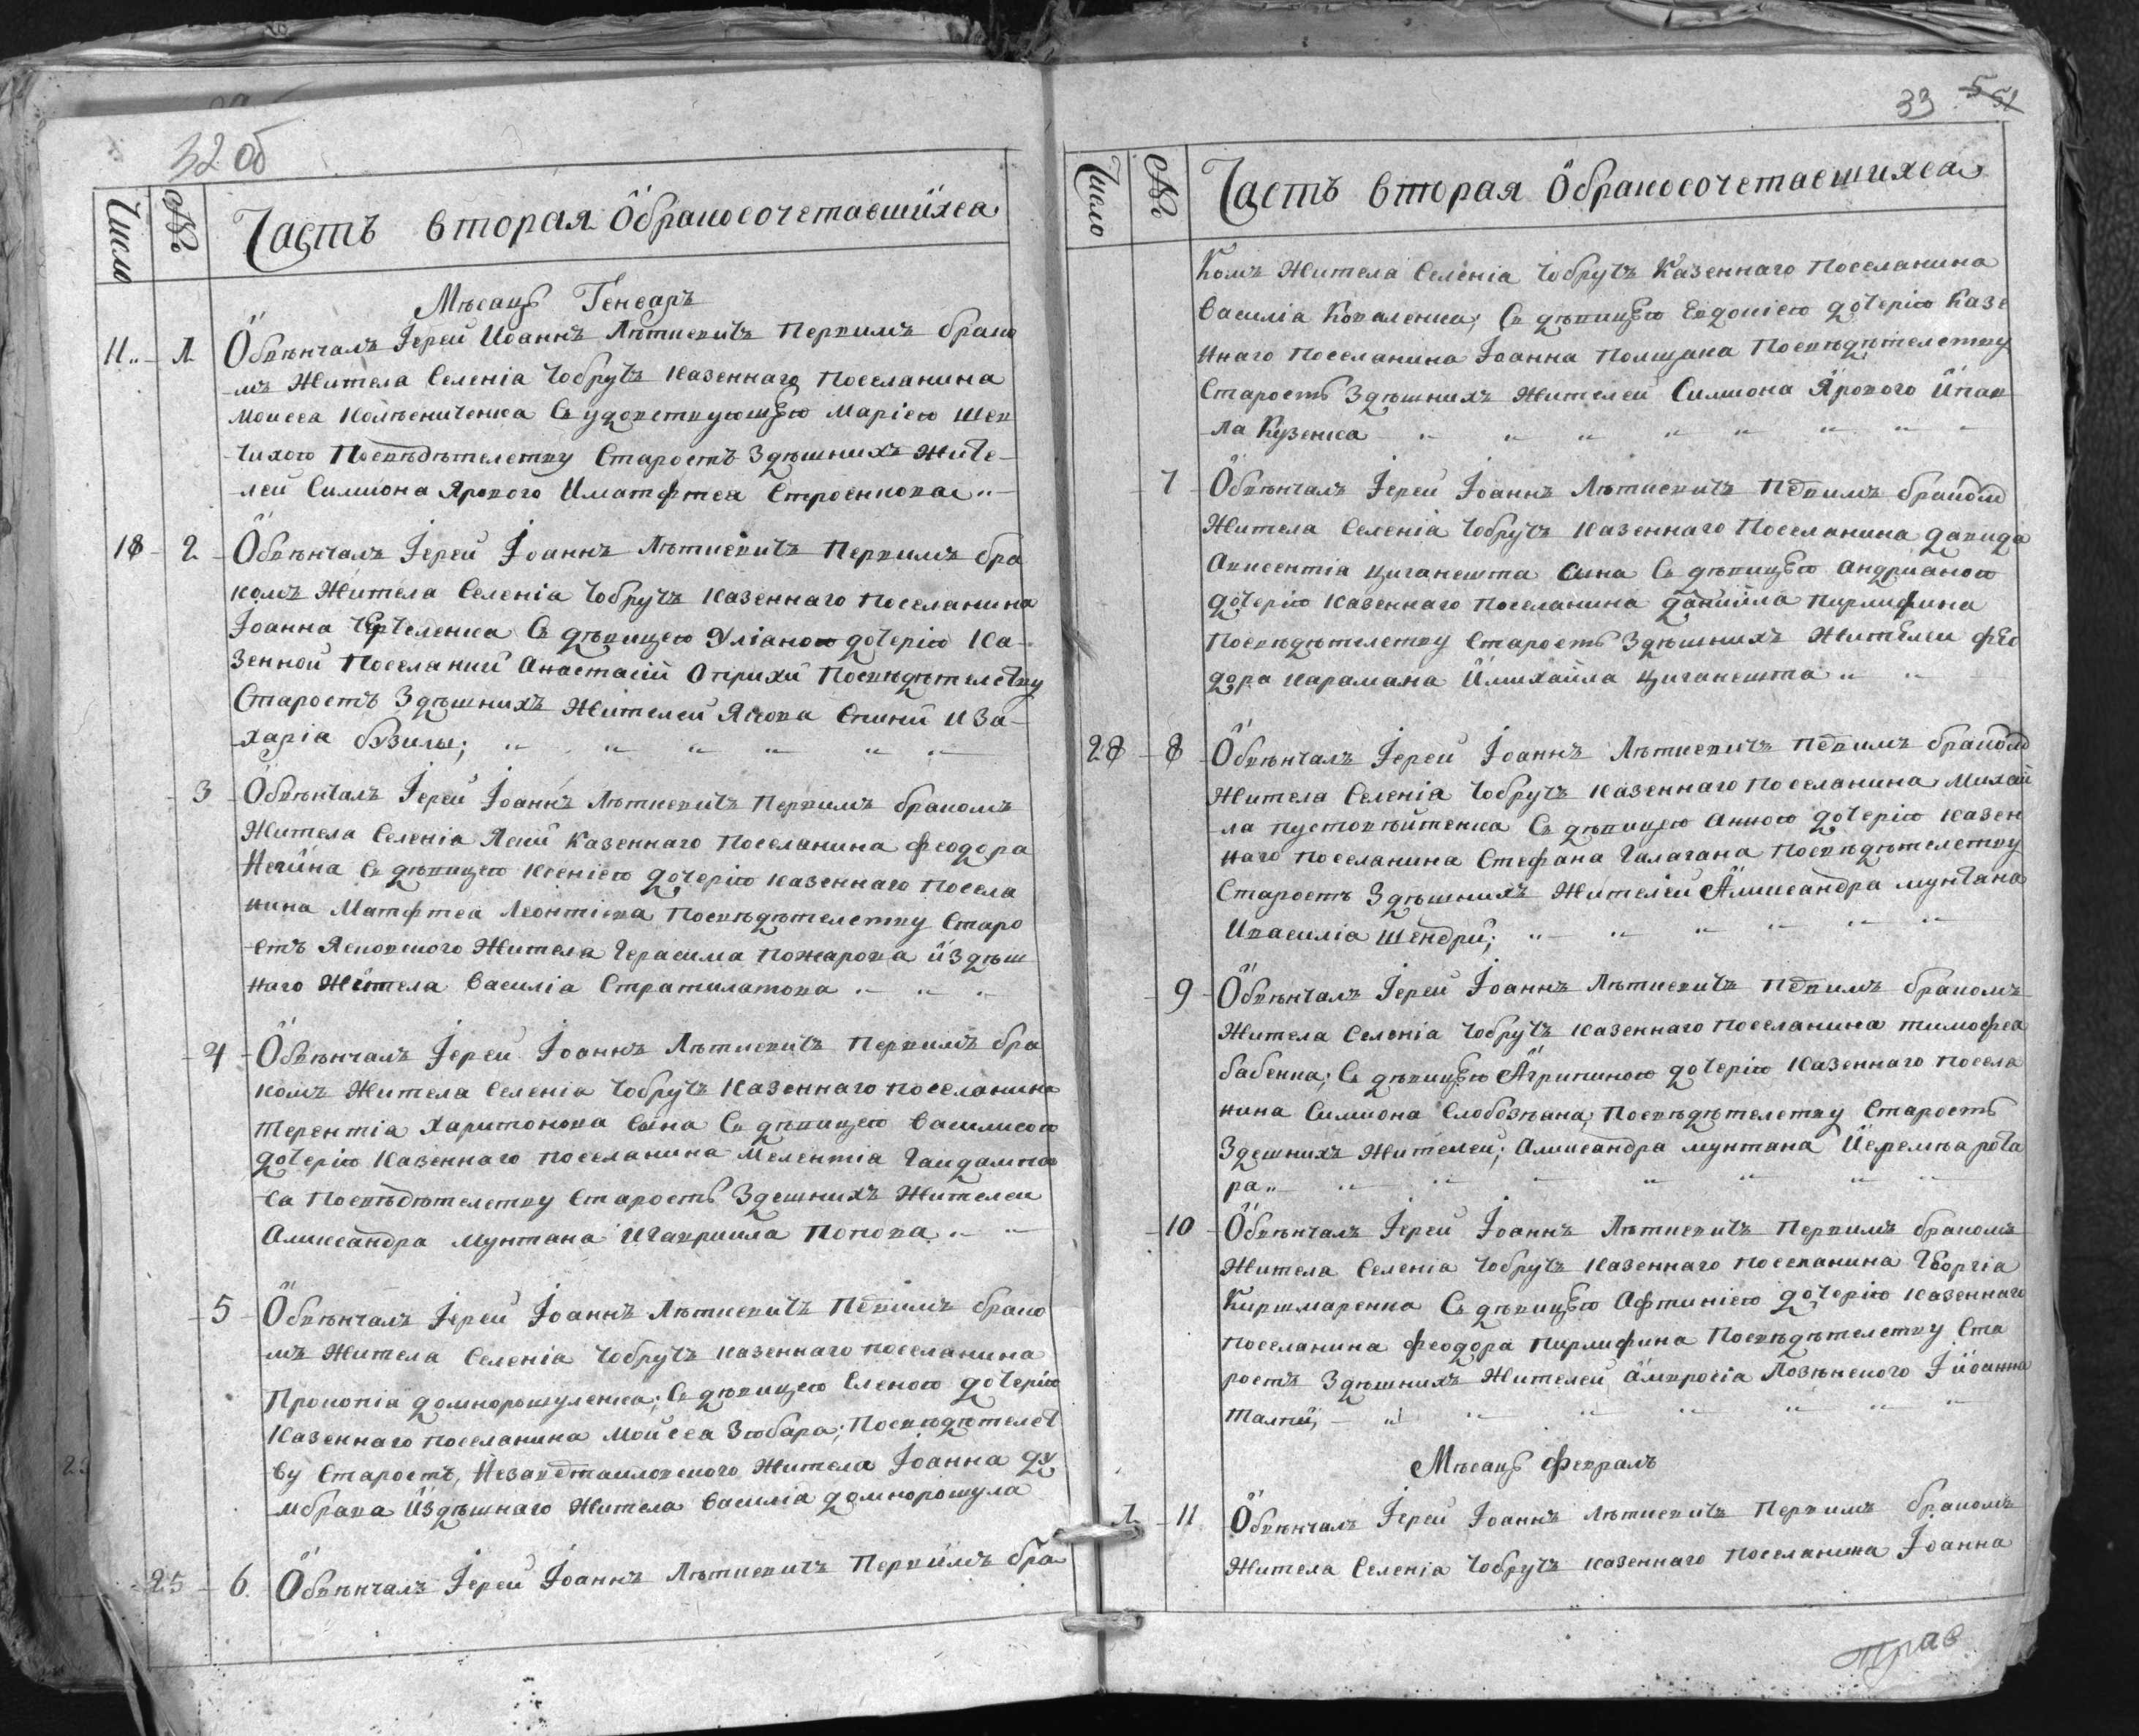 32 об
Число
№
Часть вторая Обракосочетавшихся
Мѣсацъ Генваръ
11 1 Обвѣнчалъ Іерей Иоаннъ Лѣткевичъ первимъ брако
мъ Жителя Селенія Чобручъ казеннаго поселанина
Моисея Колѣсниченка Съ удовствующею Маріею Шев
чихою посвѣдѣтелству Старостъ Здѣшнихъ Жите
лей Симиона Ярового Иматфтея Строенкова
18 2 Обвѣнчалъ Іерей Іоаннъ Лѣткевичъ первимъ бра
комъ Жителя Селенія Чобручъ казеннаго поселанина
Іоанна Съ дѣвицею Уліаною дочерію ка
зенной поселанки Анастасіи Оприхи посвѣдѣтелству
Старостъ Здѣшнихъ Жителей Якова Спини и За
харіа бузилы;
3 Обвѣнчалъ Іерей Іоаннъ Лѣткевичъ первимъ бракомъ
Жителя Селенія Яски казеннаго поселанина Феодора
Негина Съ дѣвицею Ксеніею дочерію казеннаго посела
нина Матфтея Леонтіева посвѣдѣтелству Старо
стъ Ясковского Жителя Герасима Пожарова и здѣш
наго Жителя Василіа Стратилатова
4 Обвѣнчалъ Іерей Іоаннъ Лѣткевичъ первимъ бра
комъ Жителя Селенія Чобручъ казеннаго поселанина
Терентіа Харитонова Сына Съ дѣвицею Василисою
дочерію казеннаго поселанина Мелентіа
са посвѣдѣтелству Старостъ Здешнихъ Жителей
Аликсандра Мунтана Игавриила Попова
5 Обвѣнчалъ Іерей Іоаннъ Лѣткевичъ первимъ брако
мъ Жителя Селенія Чобручъ казеннаго поселанина
Прокопіа Домнорошуленка; Съ дѣвицею Еленою дочерію
казеннаго поселанина Моисея Зюбара; посвѣдѣтелст
ву Старостъ, Незавертаиловского Жителя Іоанна Ду
мбрава Издѣшнаго Жителя Василіа Домнорошула
25 6 Обвѣнчалъ Іерей Іоаннъ Лѣткевичъ первимъ бра
33 51
Число
№
Часть вторая Обракосочетавшихся
комъ Жителя Селенія Чобручъ казеннаго поселанина
Василіа Коваленка; Съ дѣвицею Евдокіею дочерію казе
ннаго поселанина Іоанна Полщака посвѣдѣтелству
Старостъ Здѣшнихъ Жителей Симиона Ярового Ипав
ла Кузенка
7 Обвѣнчалъ Іерей Іоаннъ Лѣткевичъ первимъ бракомъ
Жителя Селенія Чобручъ казеннаго поселанина Давида
Авксентіа Циганешта сина Съ дѣвицею Андрианою
дочерію казеннаго поселанина Даниила Пирлифина
посвѣдѣтелству Старостъ Здѣшнихъ Жителей Фео
дора Карамана Имихайла Циганешта
28 8 Обвѣнчалъ Іерей Іоаннъ Лѣткевичъ первимъ бракомъ
Жителя Селенія Чобручъ казеннаго поселанина Михай
ла Пустовѣйтенка Съ дѣвицею Анною дочерію казен
наго поселанина Стефана Галагана посвѣдѣтелству
Старостъ Здѣшнихъ Жителей Аликсандра Мунтана
Ивасиліа Шендри;
9 Обвѣнчалъ Іерей Іоаннъ Лѣткевичъ первимъ бракомъ
Жителя Селенія Чобручъ казеннаго поселанина Тимофеа
Бабенка; Съ дѣвицею Агрипиною дочерію казеннаго посела
нина Симиона Слобозѣана; посвѣдѣтелству Старостъ
Здешнихъ Жителей; Аликсандра Мунтана Иеремѣа Рота
ра
10 Обвѣнчалъ Іерей Іоаннъ Лѣткевичъ первимъ бракомъ
Жителя Селенія Чобручъ казеннаго поселанина Георгіа
Киршмаренка Съ дѣвицею Афтиніею дочерію казеннаго
поселанина Феодора Пирлифина посвѣдѣтелству Ста
ростъ Здѣшнихъ Жителей Амвросіа Лозѣнского Иіоанна
Талпи,
Мѣсацъ Февралъ
1 11 Обвѣнчалъ Іерей Іоаннъ Лѣткевичъ первимъ бракомъ
Жителя Селенія Чобручъ казеннаго поселанина Іоанна